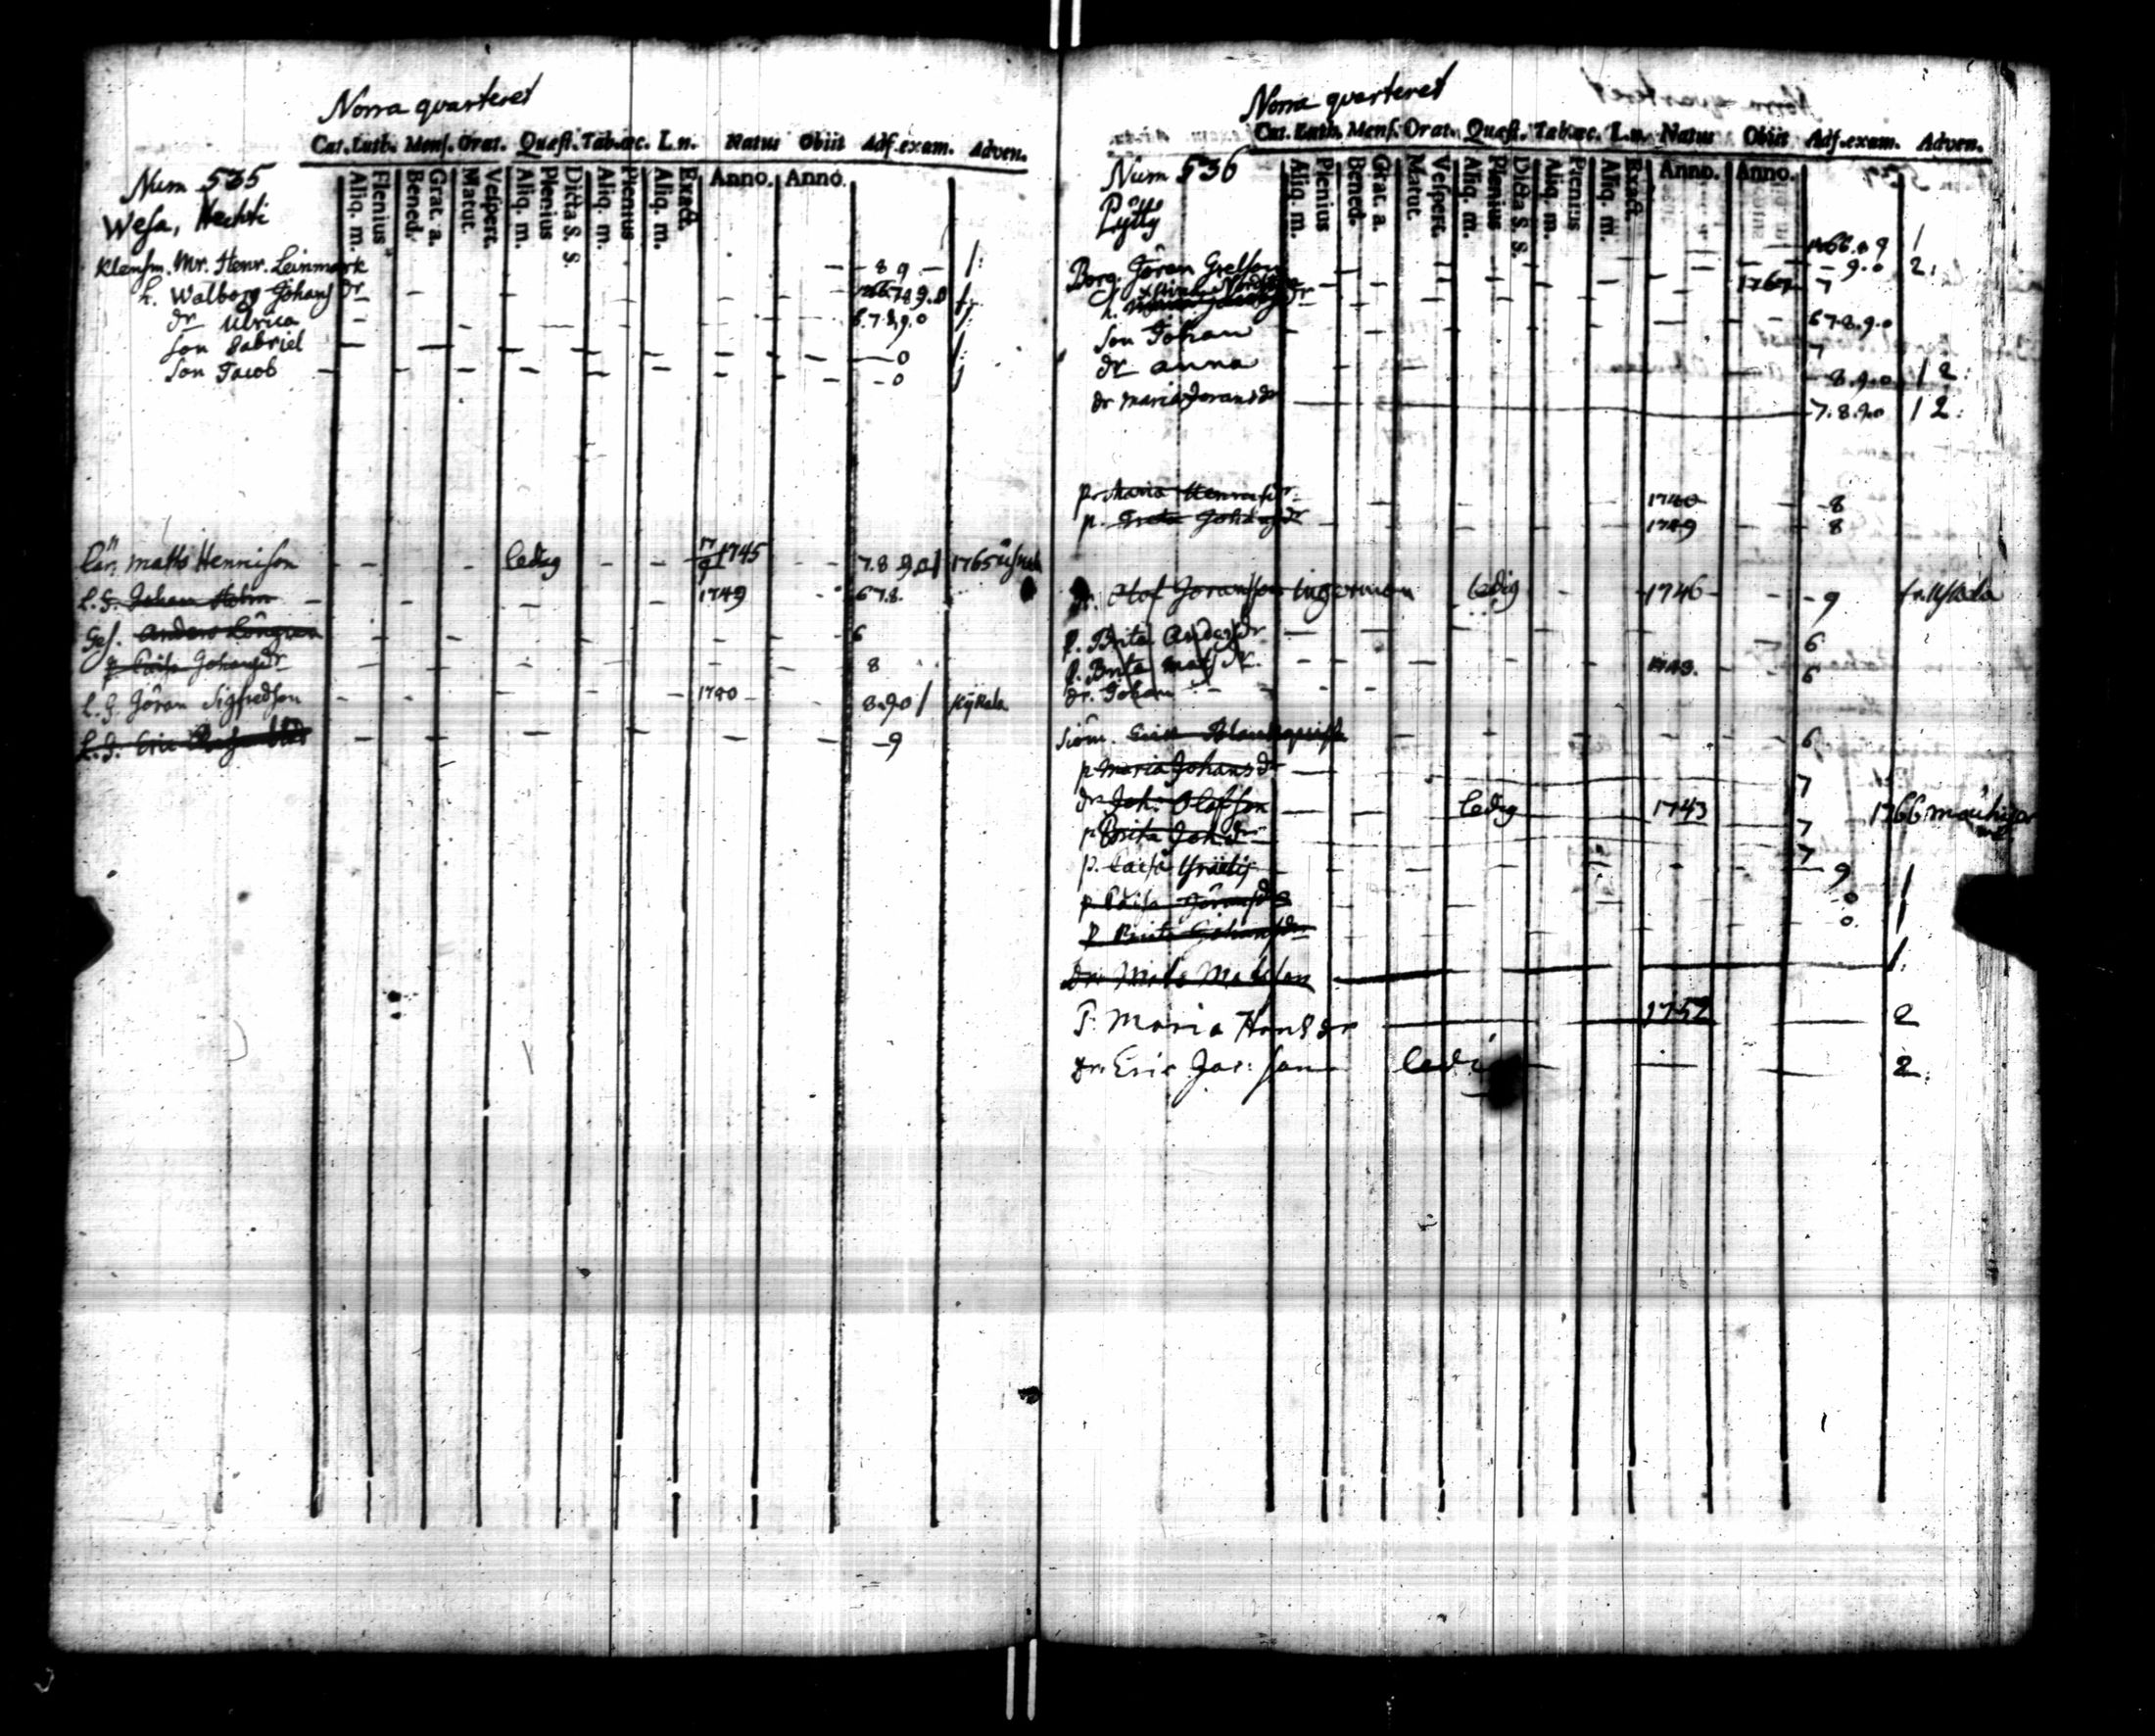 Norra quarteret
Cat. Luth. Mens. Orat. Quæst. Tab. œc. L. n. Natus Obiit Adf. exam. Adven.
Num 535
Aliq. m. Plenius Bened. Grat. a. Matut. Vespert. Aliq. m. Plenius Dicta S. S. Aliq. m. Plenius Aliq. m. Exact. Anno. Anno.
Wesa, Hechti
Klensm. Mr. Henr. Leinmark 8 9 1:
h. Walborg Johans dr 1766.7 8 9.0 1:
dr Ulrica 6.7.8.9.0 1:
son Gabriel 0 1:
son Jacob 0 1
Lär. Matts Henrisson ledig 17/9 1745 7.8 9.0 1 1765
L. G. Johan Holm 1749 6 7 8.
Ges. Anders 6
p. Caisa Johansdr 8
L. G. Jöran Sigfredson 1740 8.9.0 / Kykala
L. G. Eric 9
Norra quarteret
Cat. Luth. Mens. Orat. Quæst. Tab. œc. L. n. Natus Obiit Adf. exam. Adven.
Num 536
Aliq. m. Plenius Bened. Grat. a. Matut. Vespert. Aliq. m. Plenius Dicta S. S. Aliq. m. Plenius Aliq. m. Exact. Anno. Anno.
Pytty
1766.8 9 1
Borg. Jöran Grelsson 9.0 2:
h. 1767 7
son Johan 6 7.8.9.0
dr Anna 7
8.9.0 1 2:
dr Maria Joransdr 7.8.9.0 1 2:
p. Maria Henrisdr 1740 8
p. Greta Johansdr 1749 8
dr. Olof Joransson Ingerman ledig 1746 9
p. Brita Andersdr 6
p. Brita Matsdr. 1743. 6
dr. Johan
siöm. Eric Blankquist 6
p Maria Johansdr 7
dr Joh: Olofsson ledig 1743 1766
p Brita Joh dr 7
p. Caisa 7
9 1
p Caisa Jöransdr 0 1
p Brita Johansdr 0
Dr. Mats Matsson 1.
P. Maria Hansdr 1752 2
dr. Eric Jac: son ledi 2.